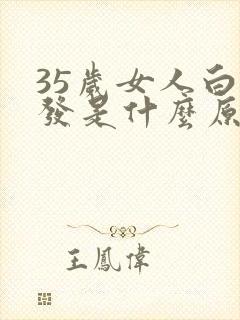 35歲女人白
發是什麼原
王鳳偉